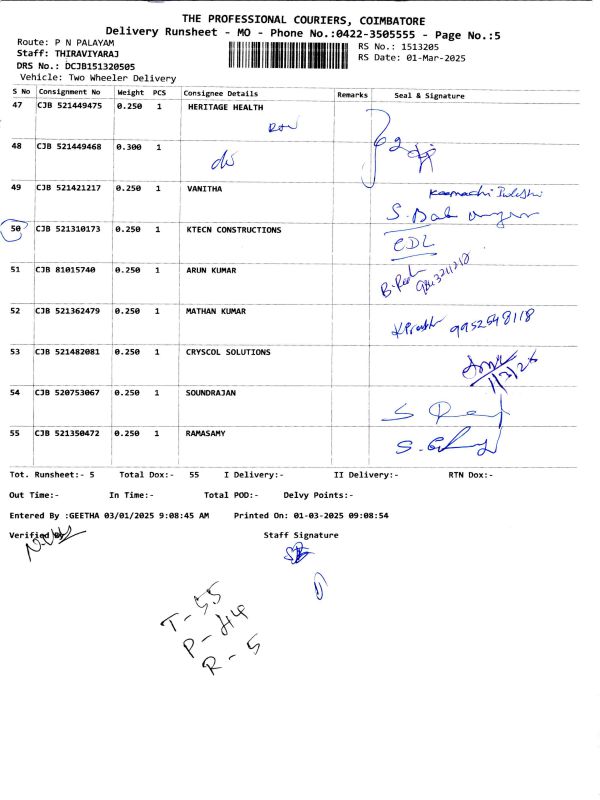 THE PROFESSIONAL COURIERS, COIMBATORE
Delivery Runsheet - MO - Phone No.:0422-3505555 - Page No.:5
Route: P N PALAYAM
Staff: THIRAVIYARAJ
DRS No.: DCJB151320505
Vehicle: Two Wheeler Delivery
RS No.: 1513205
RS Date: 01-Mar-2025
S No Consignment No Weight PCS Consignee Details Remarks Seal & Signature
47 CJB 521449475 0.250 1 HERITAGE HEALTH
48 CJB 521449468 0.300 1
49 CJB 521421217 0.250 1 VANITHA
50 CJB 521310173 0.250 1 KTECN CONSTRUCTIONS
CDL
51 CJB 81015740 0.250 1 ARUN KUMAR
52 CJB 521362479 0.250 1 MATHAN KUMAR
9952548118
53 CJB 521482081 0.250 1 CRYSCOL SOLUTIONS
54 CJB 520753067 0.250 1 SOUNDRAJAN
55 CJB 521350472 0.250 1 RAMASAMY
Tot. Runsheet:- 5 Total Dox:- 55 I Delivery:- II Delivery:- RTN Dox:-
Out Time:- In Time:- Total POD:- Delvy Points:-
Entered By :GEETHA 03/01/2025 9:08:45 AM Printed On: 01-03-2025 09:08:54
Verified By Staff Signature
T - 55
P - 44
R - 5